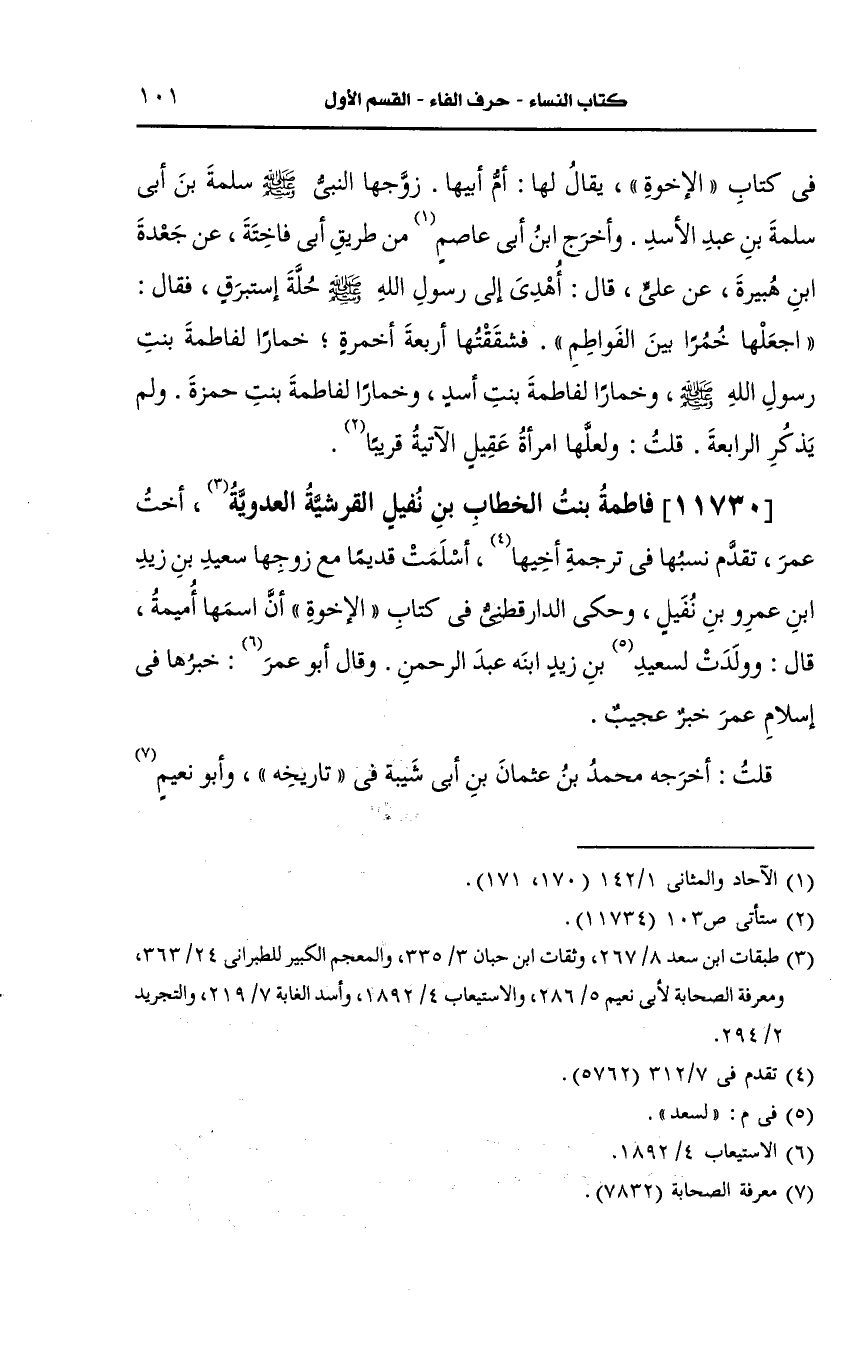 كتاب النساء - حرف الفاء - القسم الأول ١٠١
فى كتابِ «الإخوةِ»، يقالُ لها: أمُّ أبيها. زوَّجها النبىُّ ﷺ سلمةَ بنَ أبى
سلمةَ بنِ عبدِ الأسدِ. وأخرَج ابنُ أبى عاصمٍ(١) من طريقِ أبى فاخِتَةَ، عن جَعْدةَ
ابنِ هُبيرةَ، عن علىٍّ، قال: أُهْدِىَ إلى رسولِ اللهِ ﷺ حُلَّةَ إستبرَقٍ، فقال:
«اجعَلْها خُمُرًا بينَ الفَواطِمِ». فشقَقْتُها أربعةَ أخمرةٍ؛ خمارًا لفاطمةَ بنتِ
رسولِ اللهِ ﷺ، وخمارًا لفاطمةَ بنتِ أسدٍ، وخمارًا لفاطمةَ بنتِ حمزةَ. ولم
يَذكُرِ الرابعةَ. قلتُ: ولعلَّها امرأةُ عَقِيلٍ الآتيةُ قريبًا(٢).
[١١٧٣٠] فاطمةُ بنتُ الخطابِ بنِ نُفيلٍ القرشيَّةُ العدويَّةُ(٣)، أختُ
عمرَ، تقدَّم نسبُها فى ترجمةِ أخِيها(٤)، أسْلَمَتْ قديمًا مع زوجِها سعيدِ بنِ زيدِ
ابنِ عمرِو بنِ نُفَيلٍ، وحكى الدارقطنىُّ فى كتابِ «الإخوةِ» أنَّ اسمَها أُميمةُ،
قال: وولَدَتْ لسعيدِ(٥) بنِ زيدٍ ابنَه عبدَ الرحمنِ. وقال أبو عمرَ(٦): خبرُها فى
إسلامِ عمرَ خبرٌ عجيبٌ.
قلتُ: أخرَجه محمدُ بنُ عثمانَ بنِ أبى شَيبةَ فى «تاريخِه»، وأبو نعيمٍ(٧)
(١) الآحاد والمثانى ١/ ١٤٢ (١٧٠، ١٧١).
(٢) ستأتى ص١٠٣ (١١٧٣٤).
(٣) طبقات ابن سعد ٨/ ٢٦٧، وثقات ابن حبان ٣/ ٣٣٥، والمعجم الكبير للطبرانى ٢٤/ ٣٦٣،
ومعرفة الصحابة لأبى نعيم ٥/ ٢٨٦، والاستيعاب ٤/ ١٨٩٢، وأسد الغابة ٧/ ٢١٩، والتجريد
٢/ ٢٩٤.
(٤) تقدم فى ٧/ ٣١٢ (٥٧٦٢).
(٥) فى م: «لسعد».
(٦) الاستيعاب ٤/ ١٨٩٢.
(٧) معرفة الصحابة (٧٨٣٢).